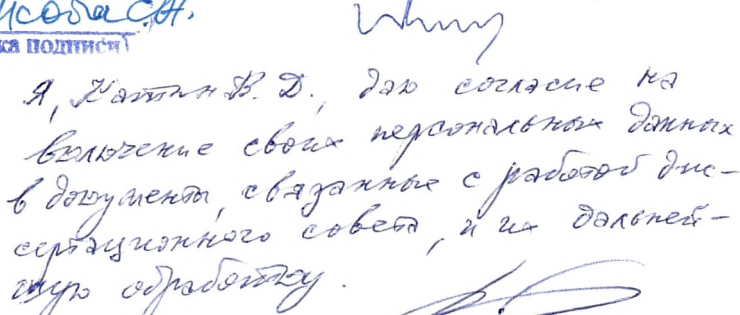 ка подписи)
Я, Катин В. Д., даю согласие на
включение своих персональных данных
в документы, связанные с работой дис-
сертационного совета, и их дальней-
шую обработку.